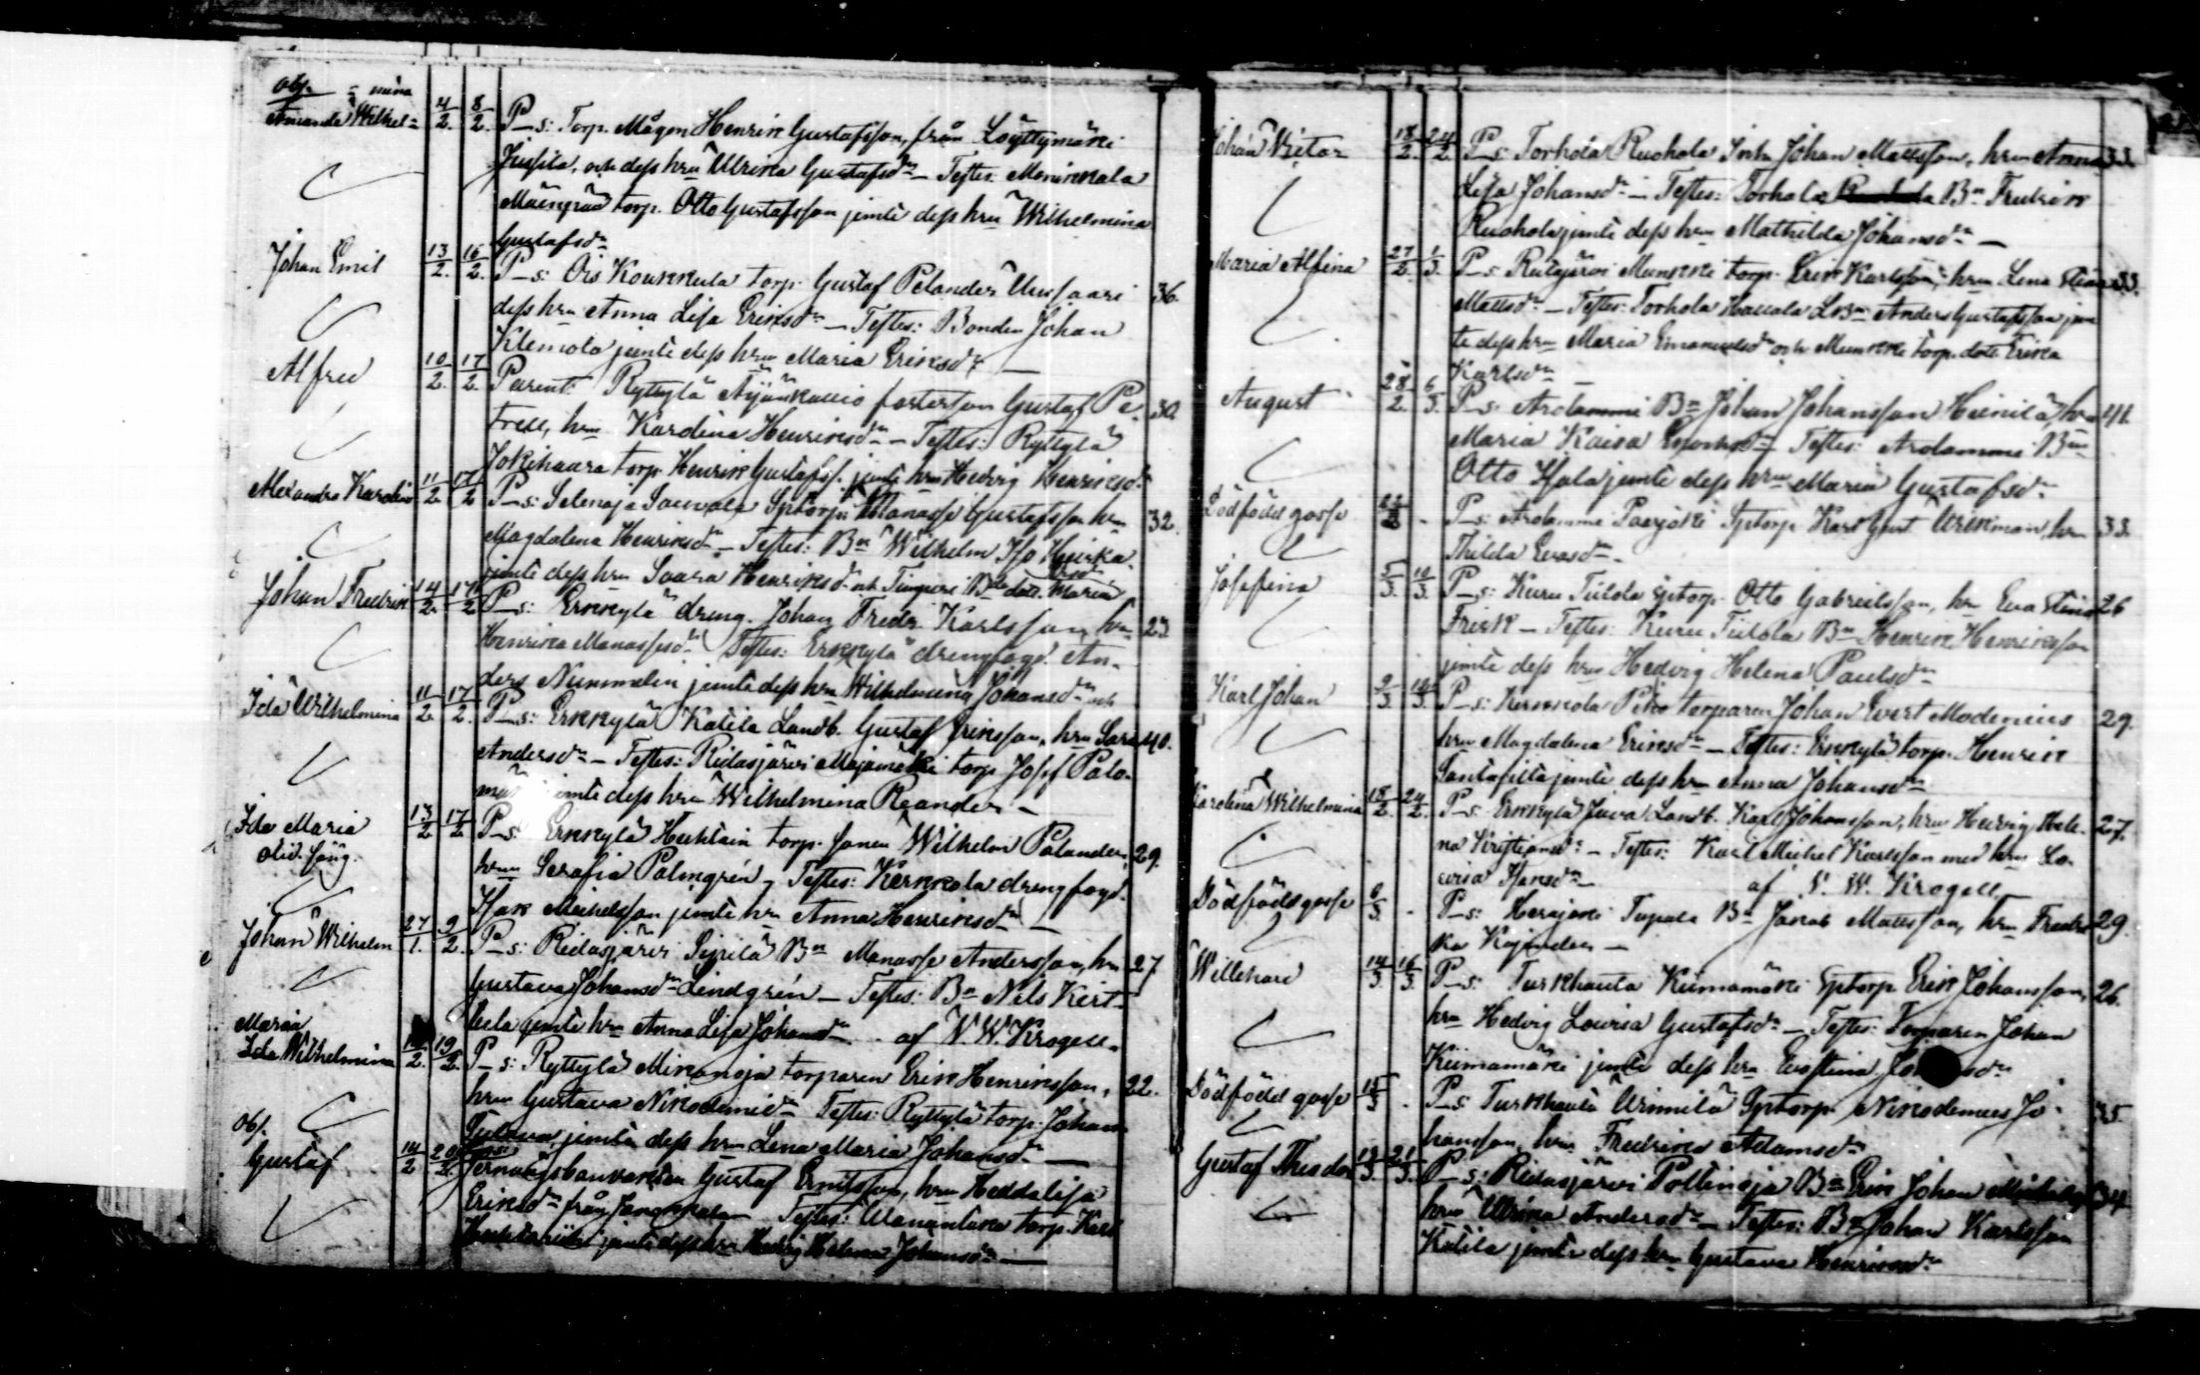 obs. = mina
Amanda Wilhel= 4/2. 8/2. P_s: Torp. Mågen Henrik Gustafsson, från Löyttymäki
Jussila, och dess hru Ulrika Gustafsdr – Testes: Monikkala
torp. Otto Gustafsson jemte dess hru Wilhelmina
Gustafsdr
Johan Emil 13/2. 16/2. P_s: Ois Koukkula torp. Gustaf Pelander Uusisaari 36.
dess hru Anna Lisa Eriksdr – Testes: Bonden Johan
Klemola jemte dess hru Maria Eriksdr –
Alfred 10/2. 17/2. Parent: Ryttylä Äijänkallio fosterson Gustaf Pe- 30.
trell, hru Karolina Henriksdr – Testes: Ryttylä
torp. Henrik Gustafss. jemte hru Hedvig Henriksdr
Alexandra Karolin 11/2 17/2 P_s: Selenoja Sptorp. Manasse Gustafsson hru 32.
Magdalena Henriksdr – Testes: Bn Wilhelm Iso
jemte dess hru Saara Henriksdr och dotr. Maria
Johan Fredrik 14/2. 17/2. P_s: Erkkylä dreng. Johan Fredr. Karlsson, hru 23
Henrika Manassesdr Testes: Erkkylä drengfogd. An-
ders Nummelin jemte dess hru Wilhelmina Johansdr och
Ida Wilhelmina 11/2. 17/2. P_s: Erkkylä Katila Landb. Gustaf Eriksson, hru Sara 40.
Andersdr – Testes: Ridasjärvi Majamäki torp. Josef Palo-
jemte dess hru Wilhelmina Reander –
Ida Maria 13/2 17/2 P_s: Erkkylä Huhtain torp. sonen Wilhelm Palander, 29.
hru Serafia Palmgrén – Testes: Kerkkola drengfogd.
Isak Mickelsson jemte hru Anna Henriksdr –
Johan Wilhelm 27/1. 9/2. P_s: Ridasjärvi Sipilä Bn Manasse Andersson, hru 27
Gustava Johansdr Lindgrén – Testes: Bn Nils Kert-
tula jemte hru Anna Lisa Johansdr – af V. W. Krogell.
Maria
Ida Wilhelmina 19/2. P_s: Ryttylä Mikonoja torparen Erik Henriksson, 22.
hru Gustava Nikodemidr Testes: Ryttylä torp. Johan
jemte dess hru Lena Maria Johansdr –
obs.
Gustaf 14/2 20/2. Jernvägsbanvakten Gustaf Ernstsson, hru Hedda Lisa
Eriksdr från Testes: torp. Karl
jemte dess hru Hedvig Helena Johansdr –
Johan Victor 18/2. 24/2. P_s: Torhola Ruohola Inh. Johan Mattsson, hru Anna 33
Lisa Johansdr – Testes: Torhola Bn Fredrik
Ruohola jemte dess hru Mathilda Johansdr –
Maria Alfina 27/2. 1/3. P_s: Ridasjärvi Munkki torp. Erik Karlsson, hru Lena Stina 33.
Mattsdr – Testes: Torhola Hallala Anders Gustafsson jem
te dess hru Maria Emanuelsdr och Munkki torp. dotr. Erika
Karlsdr
August 28/2. 6/3. P_s: Arolammi Bn Johan Johansson Heinilä, hru 41.
Maria Kaisa – Testes: Arolammi Bn
Otto Ojala jemte dess hru Maria Gustafsdr
Dödfödd gosse . P_s: Arolammi Paarjoki Sptorp. Karl Gust. Wikman, hru 33.
Thilda Evasdr –
Josefina 5/3. 10/3. P_s: Kuru Tiilola Sptorp. Otto Gabrielsson, hru Eva Stina 26
Frisk – Testes: Kuru Tiilola Bn Henrik Henriksson
jemte dess hru Hedvig Helena Paulsdr
Karl Johan 9/3. 10/3. P_s: Kerkkola torparen Johan Evert Modenius 29.
hru Magdalena Eriksdr – Testes: Erkkylä torp. Henrik
Santasilta jemte dess hru Anna Johansdr
Karolina Wilhelmina 18/2. 24/2. P_s: Erkkylä Landb. Karl Johansson, hru Hedvig Hele- 27.
na Kristiansdr – Testes: Karl Mickel Karlsson med hru Lo-
visa Isaksdr – af V. W. Krogell –
Dödfödd gosse 8/3. . P_s: Herajoki Tapala Bn Jakob Mattsson, hru Fredri 29.
ka Kajander –
Willehard 14/3. 16/3. P_s: Turkhauta Kiimamäki Sptorp. Erik Johansson, 26.
hru Hedvig Lovisa Gustafsdr – Testes: Torparen Johan
Kiimamäki jemte dess hru
Dödfödd gosse . P_s: Turkhauta Sptorp. Nikodemus Jo- 35
hansson, hru Fredrika Adamsdr
Gustaf Theodor 21/3. P_s: Ridasjärvi Pollinoja Bn Erik Johan 34
hru Ulrika Andersdr – Testes: Bn Johan Karlsson
Katila jemte dess hru Gustava Henriksdr